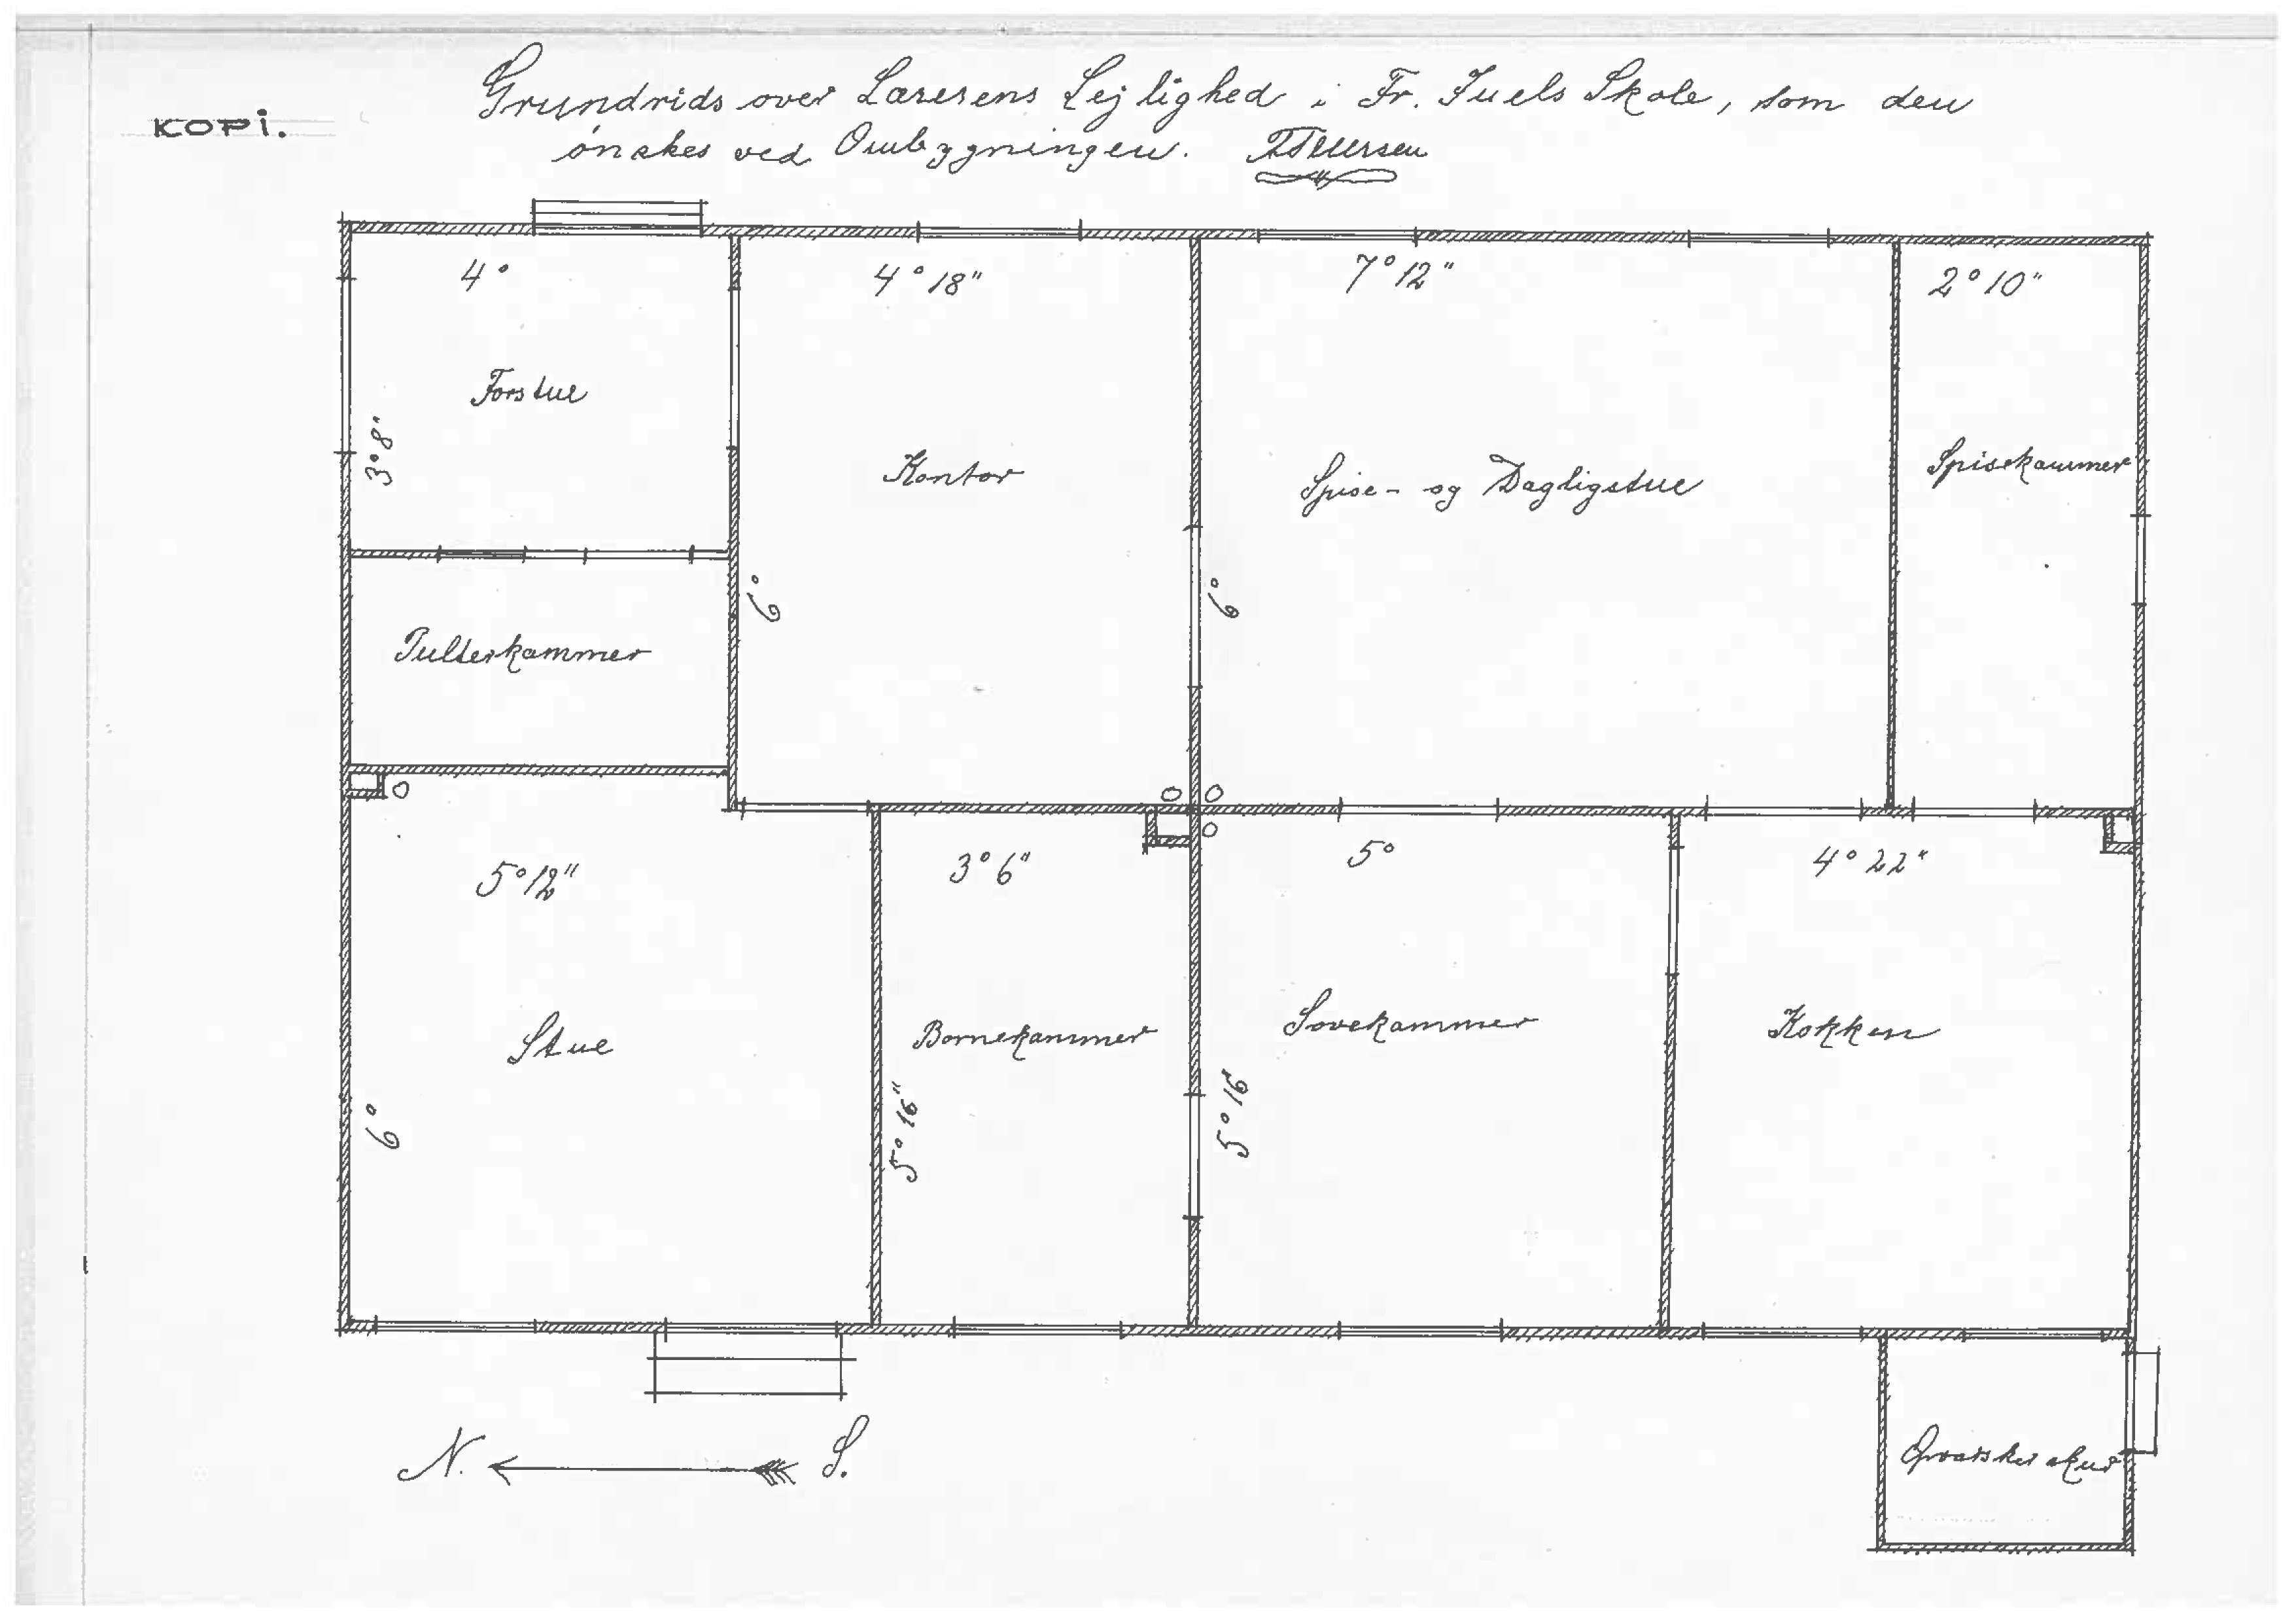 KOPI.
Grundrids over Lærerens Lejlighed i Fr. Juels Skole, som den
ønskes ved Ombygningen.
4° 4° 18" 7° 12" 2° 10"
Forstue
3° 8"
Kontor
Spise- og Dagligstue
Spisekammer
6° 6°
Pulterkammer
5° 12" 3° 6" 5° 4° 22"
Stue
Børnekammer
Sovekammer
Køkken
6° 5° 16" 5° 16"
N. S.